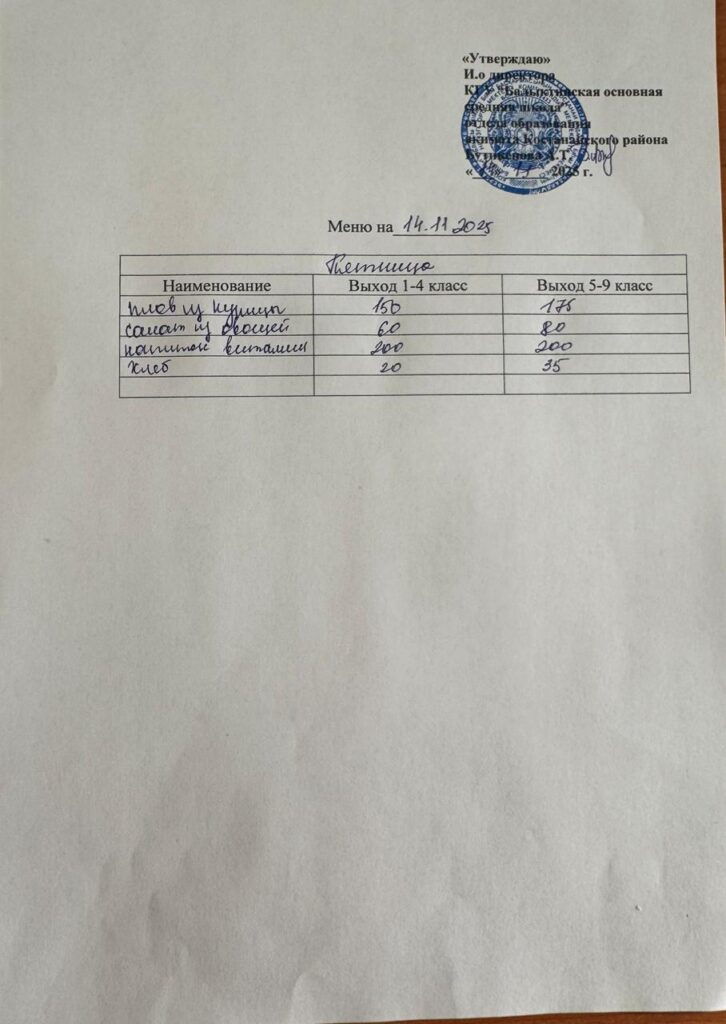 «Утверждаю»
И.о директора
КГУ "Балыктинская основная
средняя школа"
отдела образования
акимата Костанайского района
« 11 2025 г.
Меню на 14.11.2025
Пятница
Наименование Выход 1-4 класс Выход 5-9 класс
плов из курицы 150 175
салат из овощей 60 80
напиток витамин 200 200
хлеб 20 35